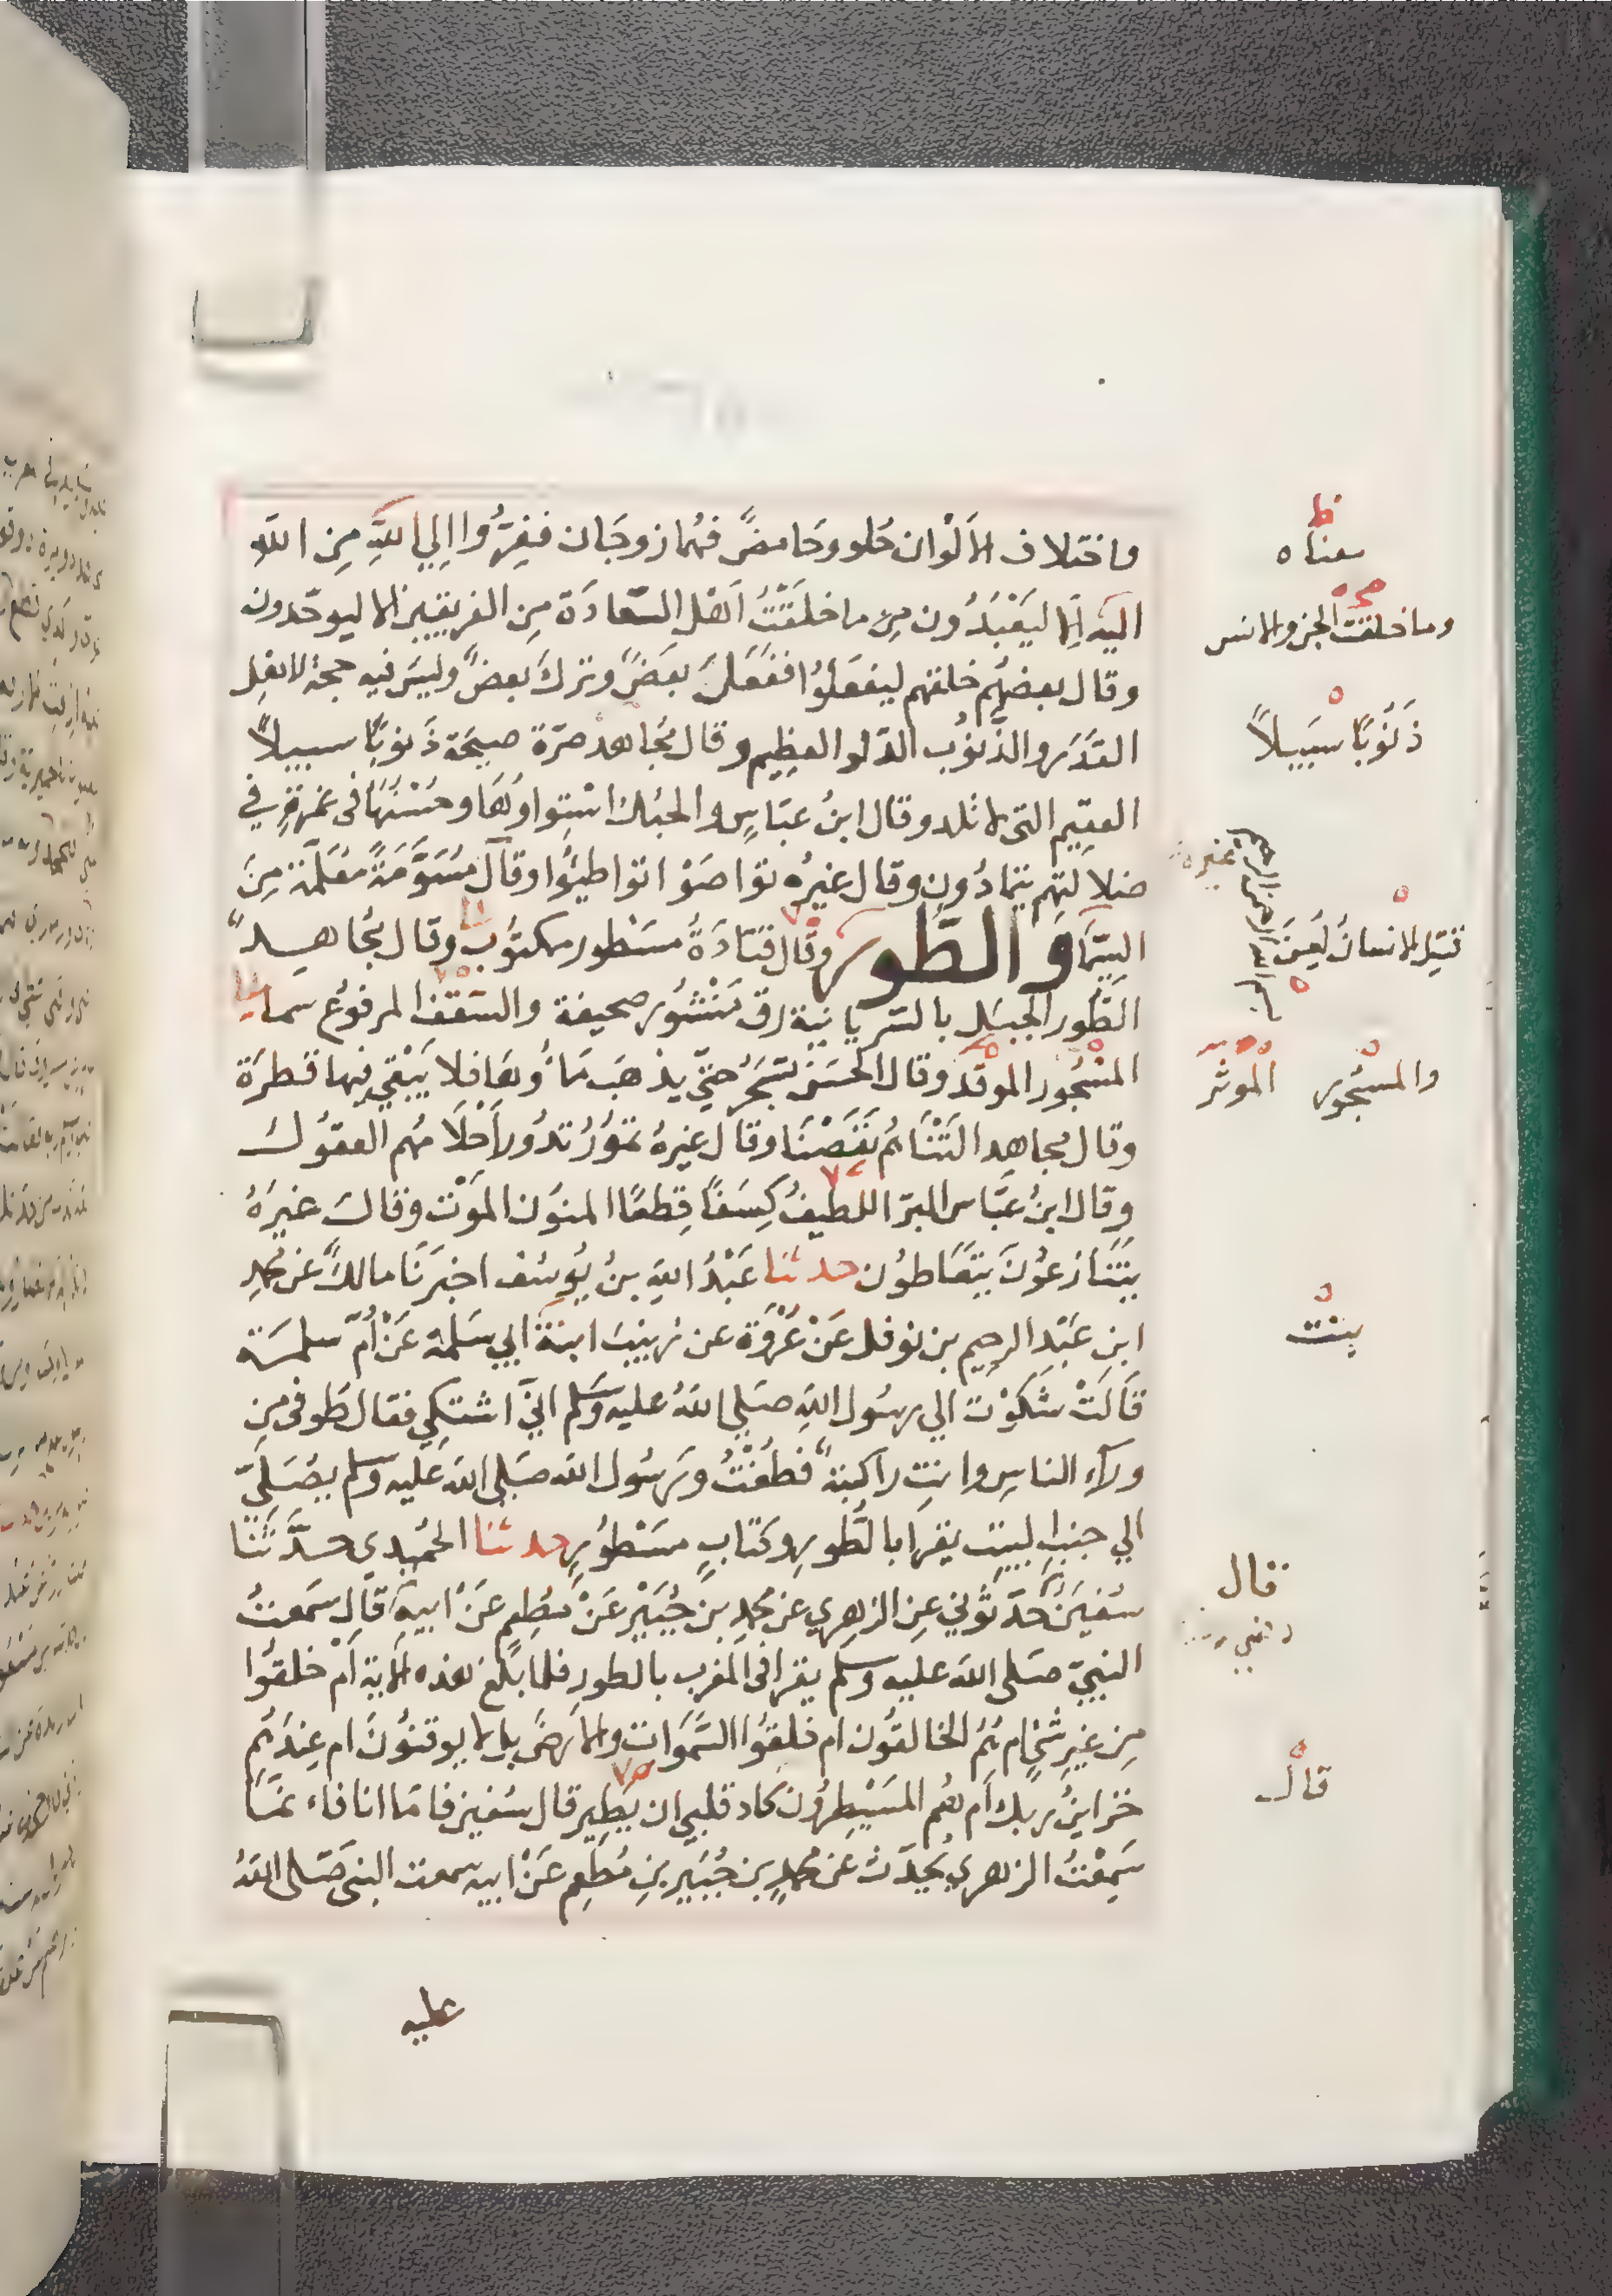 واختلاف الألوان حُلو وحَامضٌ فهُما زوجَان ففِرُّوا إلي اللهِ مِن الله
اليه إلا ليَعْبُدُون مِن ما خلقْتُ اَهْل السَّعادَة مِن الفريقين الا ليوحّدون
وقال بعضهُم خلقهم ليفعَلُوا ففَعَلَ بعَضٌ وترك بعضٌ وليسَ فيه حجة لاهل
القدَر والذَّنوُب الدّلو العظِيم وقال مُجاهد صرّة صيحَة ذَنوبًا سبيلاً
العقيِم التى لا تلد وقال ابنُ عبَاسٍ والحبُك اسْتِواوُهَا وحُسْنُهَا فى غمرةٍ في
ضلالتِهم يتمادُون وقال غيرهُ تواصَوْا تواطئوا وقال مُسَوَّمَةً مُعَلَّمَة مِنَ
السِيّمَا والطَّور وقال قتادَةُ مسَطور مكتوُب وقال مُجاهِد
الطُّور الجبَل بالسّريانية رق مَنْشُور صحيفة والسَقف المرفوُع سَماء
المسْجُور الموقَد وقال الحَسَن تسْجَرُ حتيّ يذهَب مَاؤُها فلا يَبْقي فيها قطرَة
وقال مجاهِد التْنَاهُم نقَصْنَا وقال غيرهُ تموُرُ تدُور أَحْلَامُهم العقوُل
وقال ابنُ عبَّاس البرّ اللطيفُ كِسَفًا قِطعًا المنوُن الموَت وقالَ غيرَهُ
يتَنازعُونَ يتعَاطوُن حدثنا عَبْدُ اللهِ بنُ يوُسُف اخبرَنَا مالكٌ عَن محمدِ
ابنِ عَبْد الرحيم بن نوفل عَنْ عُرْوَة عن زينبَ ابنة ابي سَلمة عَنْ اُمّ سلمَة
قَالَتْ شَكَوْت الي رسُول اللهِ صَلي اللهُ عليه وَسَلم انيّ اشتكي فقال طُوفى مِن
ورآء الناسِ وانتِ راكبة فطُفْتُ ورسُول الله صَلى الله عَليه وسلم يصُلي
الي جنبِ البيتِ يقرا بالطُّورِ وكتابٍ مسَطوُرٍ حدثنا الحُميدي حدَّثنَا
سُفينُ حَدّثوُني عِن الزهِري عن محمدِ بن جُبَيْر عَنْ مُطعِم عَنْ ابيهِ قال سَمعتُ
النبيّ صَلى الله عليه وسلم يقرا فى المغرب بالطور فلما بَلغ هذه الاية اَمْ خلقوُا
مِن غيرِ شئٍ ام هُمُ الخالقوُن ام خلقوُا السَّمَوَات والارضَ بل لا يوقنوُنَ ام عِندَهُم
خزاينُ ربك اَم هُم المسَيْطِرُون كاد قلبي ان يَطير قال سُفين فامّا انا فاءنمَا
سَمِعْتُ الزهري يُحدّث عَن محمدِ بن جُبَير بنِ مُطعِم عَنْ ابيه سمعت النبى صَلى اللهُ
عليه
معناه
وما خلقت الجن والانس
ذَنوُبًا سَبِيلاً
غيره
قتل الانسانُ لُعِنَ
بسم الله الرحمن الرحيم
والمسْجُور
الموثر
بنت
قال
قال